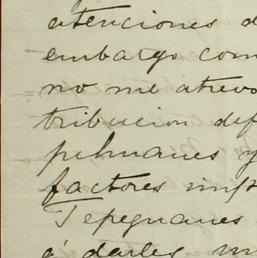 atenciones d
embargo com
no me atrevo
tribucion def
pulmanes y
factores inst
Tepeguanes
á darles m